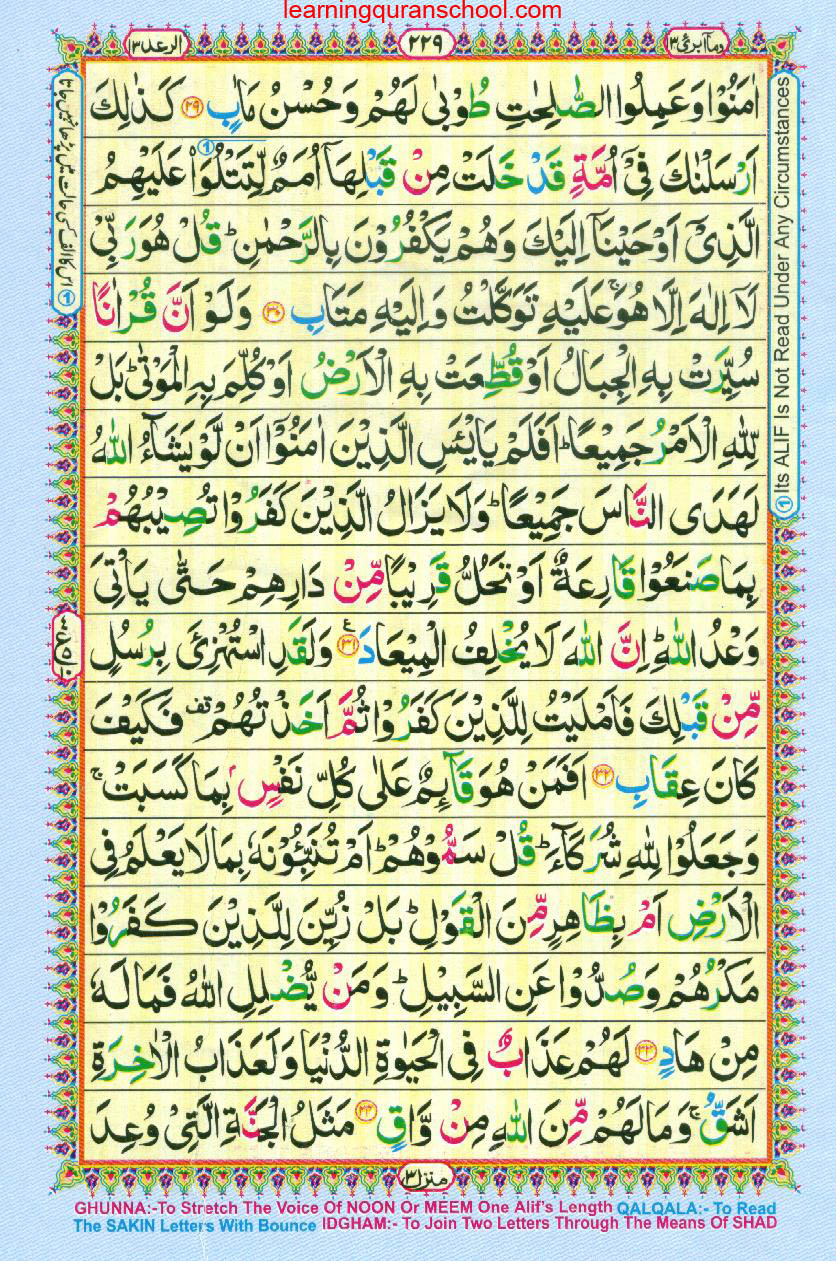 learningquranschool.com
الرعد ١٣
٢٢٩
ومآ ابرئ ١٣
اٰمَنُوْا وَعَمِلُوا الصّٰلِحٰتِ طُوْبٰى لَهُمْ وَحُسْنُ مَاٰبٍ ﴿۲۹﴾ كَذٰلِكَ
اَرْسَلْنٰكَ فِىْۤ اُمَّةٍ قَدْ خَلَتْ مِنْ قَبْلِهَاۤ اُمَمٌ لِّتَتْلُوَا۟ عَلَيْهِمُ
الَّذِىْۤ اَوْحَيْنَاۤ اِلَيْكَ وَهُمْ يَكْفُرُوْنَ بِالرَّحْمٰنِ ؕ قُلْ هُوَ رَبِّىْ
لَاۤ اِلٰهَ اِلَّا هُوَ ۚ عَلَيْهِ تَوَكَّلْتُ وَاِلَيْهِ مَتَابِ ﴿۳۰﴾ وَلَوْ اَنَّ قُرْاٰنًا
سُيِّرَتْ بِهِ الْجِبَالُ اَوْ قُطِّعَتْ بِهِ الْاَرْضُ اَوْ كُلِّمَ بِهِ الْمَوْتٰى ؕ بَلْ
لِّلّٰهِ الْاَمْرُ جَمِيْعًا ؕ اَفَلَمْ يَايْـَٔسِ الَّذِيْنَ اٰمَنُوْۤا اَنْ لَّوْ يَشَآءُ اللّٰهُ
لَهَدَى النَّاسَ جَمِيْعًا ؕ وَلَا يَزَالُ الَّذِيْنَ كَفَرُوْا تُصِيْبُهُمْ
بِمَا صَنَعُوْا قَارِعَةٌ اَوْ تَحُلُّ قَرِيْبًا مِّنْ دَارِهِمْ حَتّٰى يَاْتِىَ
وَعْدُ اللّٰهِ ؕ اِنَّ اللّٰهَ لَا يُخْلِفُ الْمِيْعَادَ ﴿۳۱﴾ ع وَلَقَدِ اسْتُهْزِئَ بِرُسُلٍ
مِّنْ قَبْلِكَ فَاَمْلَيْتُ لِلَّذِيْنَ كَفَرُوْا ثُمَّ اَخَذْتُهُمْ قف فَكَيْفَ
كَانَ عِقَابِ ﴿۳۲﴾ اَفَمَنْ هُوَ قَآئِمٌ عَلٰى كُلِّ نَفْسٍۭ بِمَا كَسَبَتْ ۚ
وَجَعَلُوْا لِلّٰهِ شُرَكَآءَ ؕ قُلْ سَمُّوْهُمْ ؕ اَمْ تُنَبِّئُوْنَهٗ بِمَا لَا يَعْلَمُ فِى
الْاَرْضِ اَمْ بِظَاهِرٍ مِّنَ الْقَوْلِ ؕ بَلْ زُيِّنَ لِلَّذِيْنَ كَفَرُوْا
مَكْرُهُمْ وَصُدُّوْا عَنِ السَّبِيْلِ ؕ وَمَنْ يُّضْلِلِ اللّٰهُ فَمَا لَهٗ
مِنْ هَادٍ ﴿۳۳﴾ لَهُمْ عَذَابٌ فِى الْحَيٰوةِ الدُّنْيَا وَلَعَذَابُ الْاٰخِرَةِ
اَشَقُّ ۚ وَمَا لَهُمْ مِّنَ اللّٰهِ مِنْ وَّاقٍ ﴿۳۴﴾ مَثَلُ الْجَنَّةِ الَّتِىْ وُعِدَ
① Its ALIF Is Not Read Under Any Circumstances
① اس کا الف کسی حالت میں پڑھا نہیں جاتا
منزل ٣
GHUNNA:-To Stretch The Voice Of NOON Or MEEM One Alif's Length QALQALA:- To Read
The SAKIN Letters With Bounce IDGHAM:- To Join Two Letters Through The Means Of SHAD